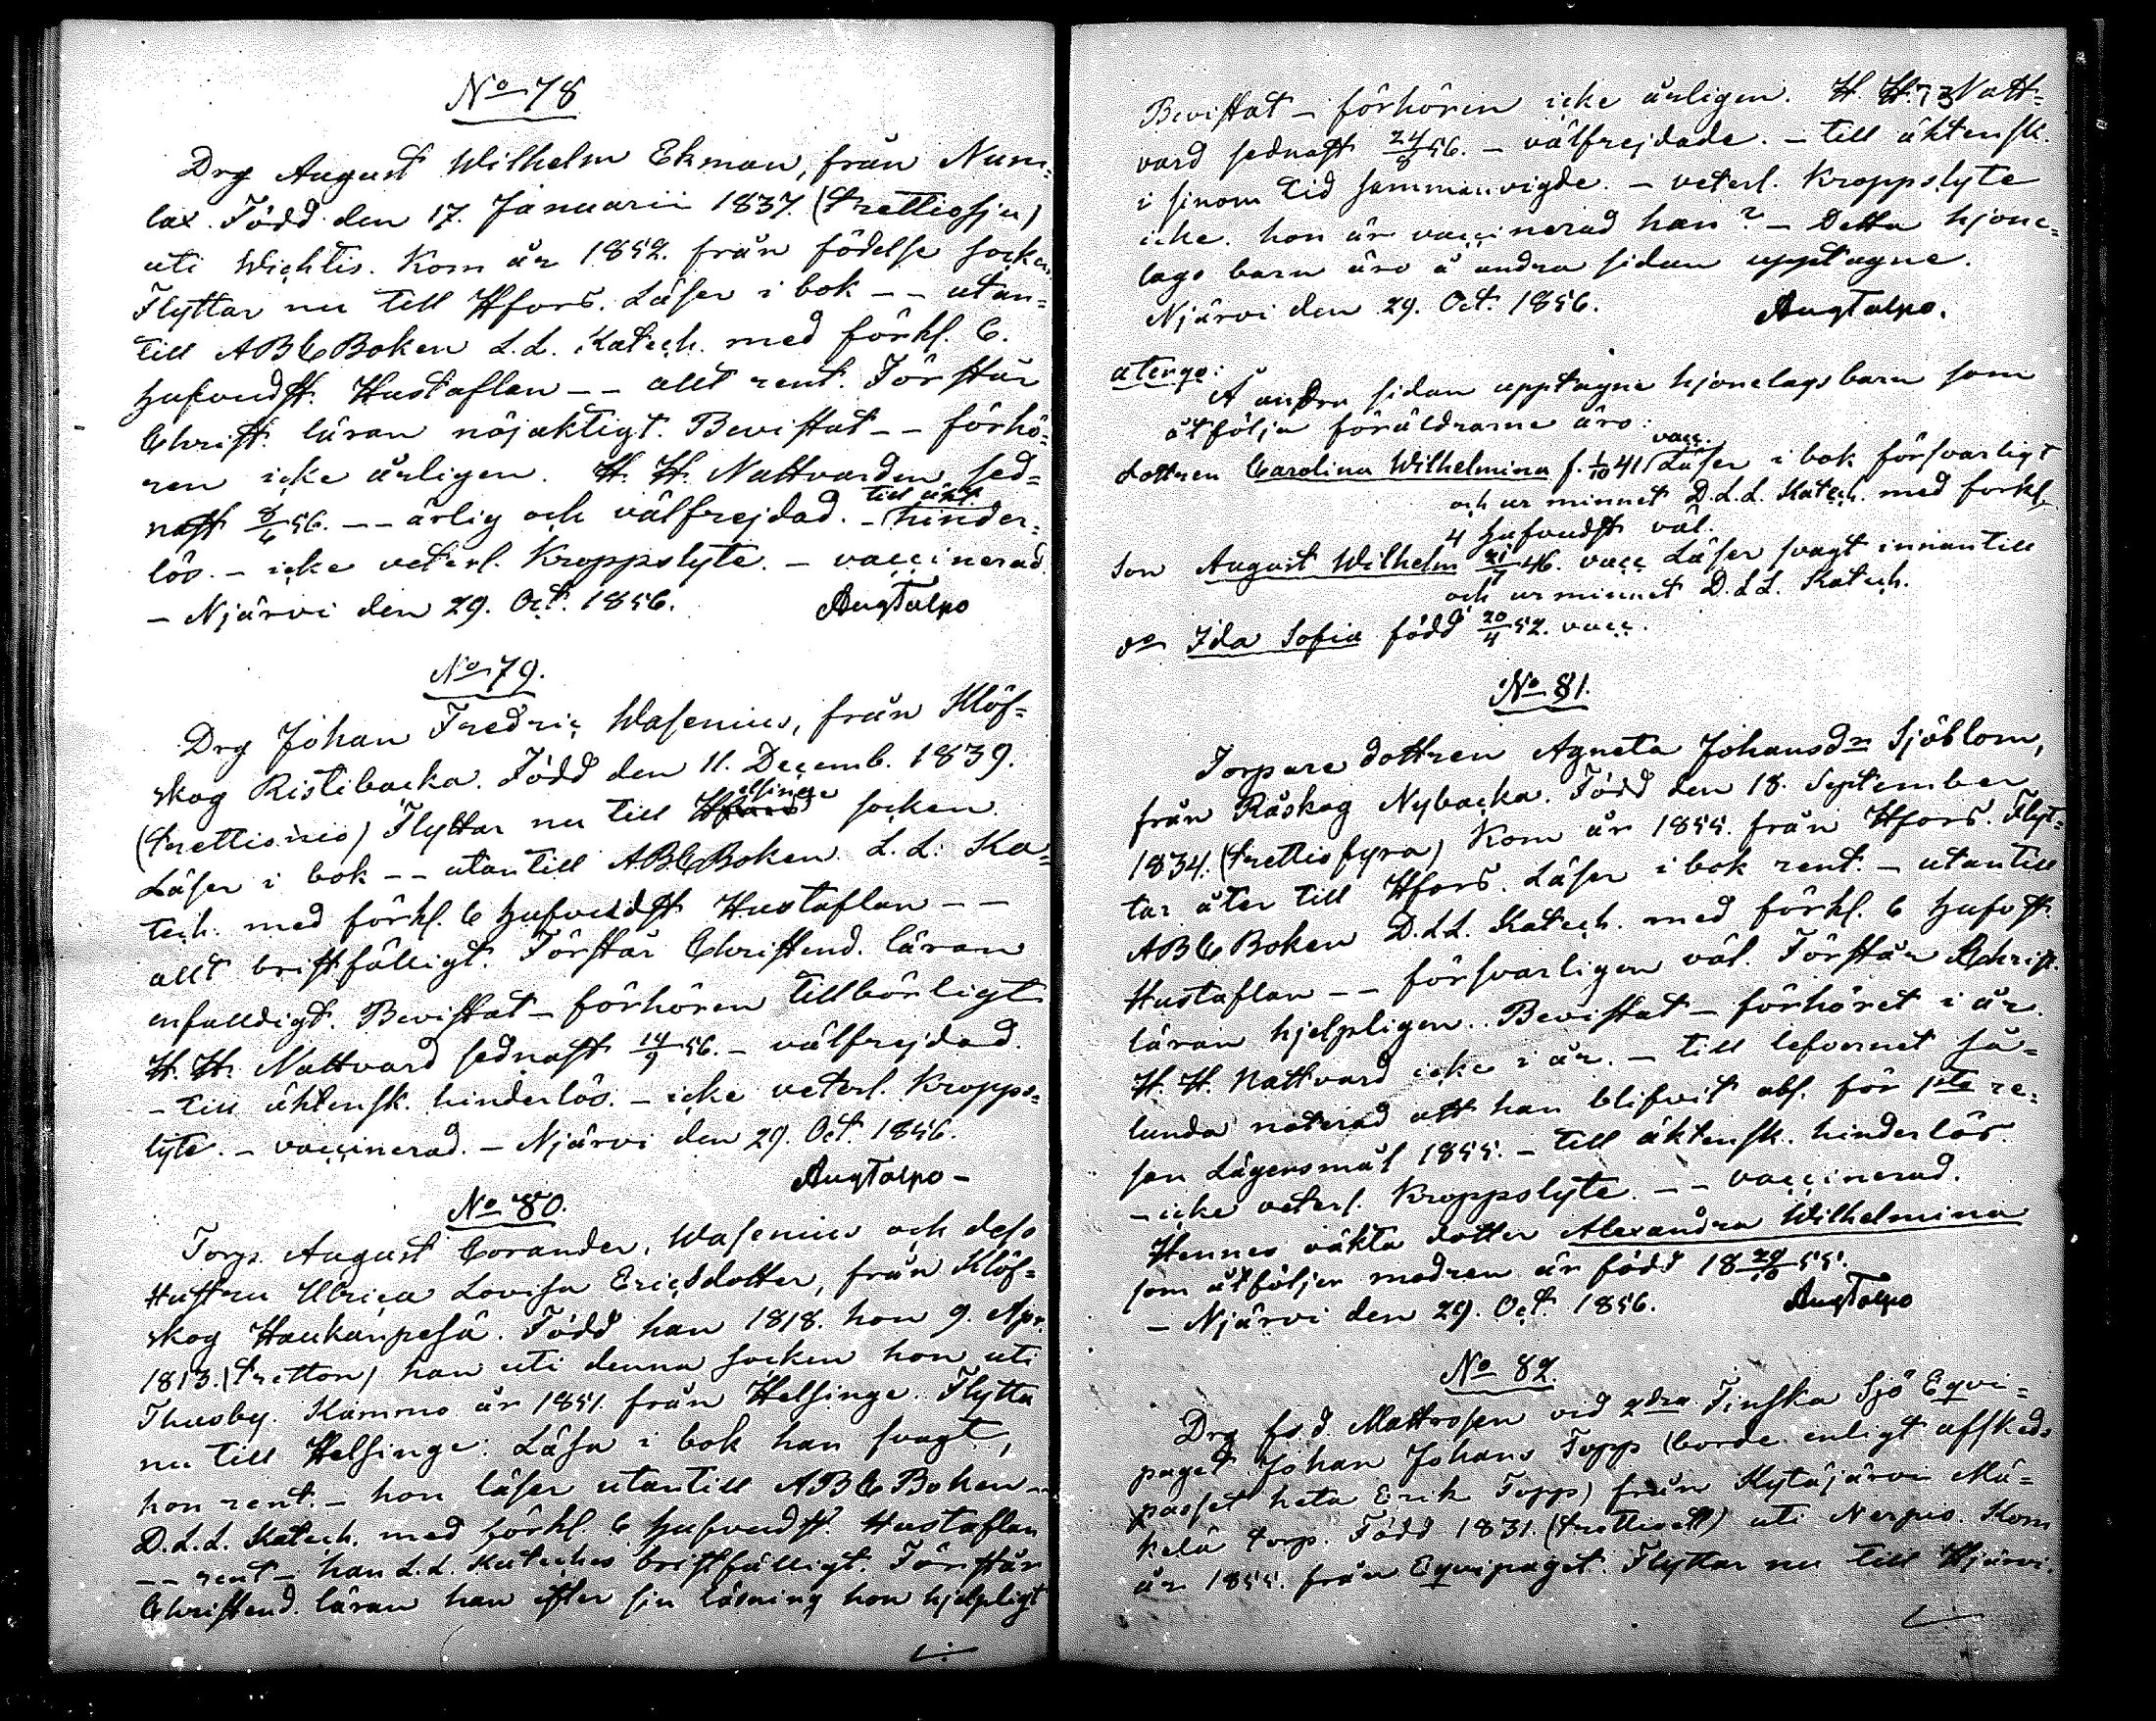 No 78
Drg August Wilhelm Ekman, från Num=
lax. Född den 17. Januarii 1837. (trettiosju)
uti Wichtis. Kom år 1852. från födelse socken
Flyttar nu till Hfors. Läser i bok -- utan=
till ABCBoken L.L. Katech. med förkl. 6.
hufvudst. Hustaflan -- allt rent. Förstår
Christ. läran nöjaktigt. Bevistat -- förhö=
ren icke årligen. H. H. Nattvarden sed=
nast 8/6 56. -- ärlig och välfrejdad. - till äkt. hinder=
lös. - icke veterl. Kroppslyte. - vaccinerad.
- Njärvi den 29. Oct. 1856. AugTalpo
No 79.
Drg Johan Fredric Wasenius, från Klöf=
skog Ristibacka. Född den 11. Decemb. 1839.
(trettionio) Flyttar nu till Helsinge socken.
Läser i bok -- utantill ABCBoken L.L. Ka=
tech. med förkl. 6 hufvudst Hustaflan --
allt bristfälligt. Förstår Christend. läran
enfalldigt. Bevistat - förhören tillbörligt
H. H. Nattvard sednast 14/9 56. - välfrejdad.
- till äktensk. hinderlös. - icke veterl. Kropps=
lyte. - vaccinerad. - Njärvi den 29. Oct. 1856.
AugTalpo -
No 80.
Torp. August Corander, Wasenius och dess
Hustru Ulrica Lovisa Ericsdotter, från Klöf=
skog Haukanpesä. Född han 1818. hon 9. Apr.
1813. (tretton) han uti denna socken hon uti
Thusby. Kommo år 1851. från Helsinge. Flytta
nu till Helsinge. Läsa i bok han svagt,
hon rent. - hon läser utantill ABC Boken -
D.L.L. Katech. med förkl. 6 hufvudst. Hustaflan
-- rent - han L.L. Kateches bristfälligt. Förstår
Christend. läran han efter sin läsning hon hjelpligt
Bevistat - förhören icke årligen. H. H. Natt=
vard sednast 24/8 56. - välfrejdade. - till äktensk.
i sinom tid sammanvigde. - veterl. Kroppslyte
icke. hon är vaccinerad han? - Detta hjone=
lags barn äro å andra sidan upptagne.
Njärvi den 29. Oct. 1856. AugTalpo.
atergo:
Å andra sidan upptagne hjonelags barn som
åtfölja föräldrarne äro:
dottren Carolina Wilhelmina f. 1/10 41 vacc. Läser i bok försvarligt
och ur minnet D.L.L. Katech. med förkl.
4 Hufvudst väl.
Son August Wilhelm 21/7 46. vacc Läser svagt innantill
och ur minnet D.L.L. Katech.
dr Ida Sofia född 20/4 52. vacc.
No 81.
Torpare dottren Agneta Johansdr Sjöblom,
från Råskog Nybacka. Född den 18. September
1834. (trettiofyra) Kom år 1855. från Hfors. Flyt=
tar åter till Hfors. Läser i bok rent. - utantill
ABC Boken D.L.L. Katech. med förkl. 6 hufvst.
Hustaflan -- försvarligen väl. Förstår Christ.
läran hjelpligen. Bevistat - förhöret i år.
H. H. Nattvard icke i år. - till lefvernet så=
lunda noterad att han blifvit abs. för 1sta re=
san Lägersmål 1855. - till äktensk. hinderlös.
- icke veterl. Kroppslyte. -- vaccinerad.
Hennes oäkta dotter Alexandra Wilhelmina
som åtföljer modren är född 18 29/10 55.
- Njärvi den 29. Oct. 1856. AugTalpo
No 82.
Drg f.d. Mattrosen vid 2dra Finska Sjö Eqvi=
paget Johan Johans Topp (borde enligt afskeds
passet heta Erik Topp) från Kytäjärvi Mä=
kelä torp. Född 1831. (trettioett) uti Nerpis. Kom
år 1855. från Eqvipaget. Flyttar nu till Hjärvi.